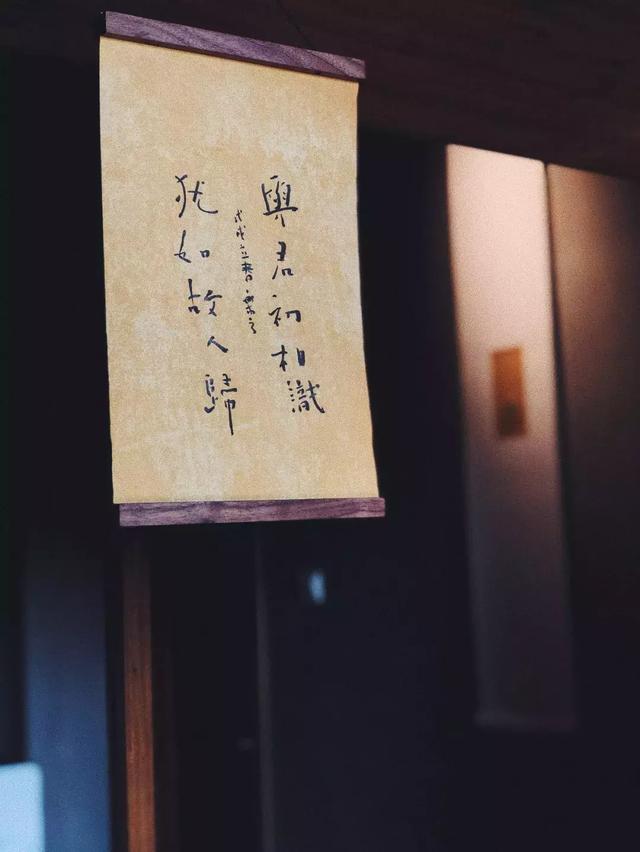 與君初相識
戊戌立春
猶如故人歸